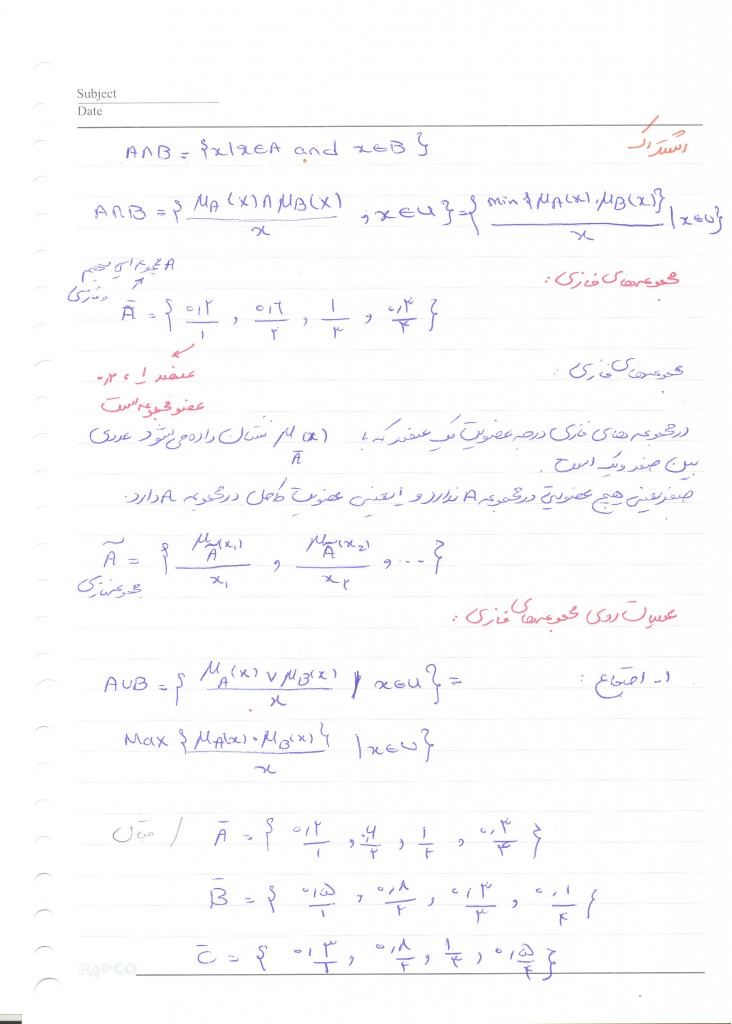 Subject
Date
اشتراک
A∩B = {x|x∈A and x∈B}
A∩B = { μA(x)∩μB(x) / x , x∈U } = { min{μA(x), μB(x)} / x | x∈U }
مجموعه های فازی:
A مجموعه ای مبهم و فازی
Ā = { ۰,۲/۱ , ۰,۶/۲ , ۱/۳ , ۰,۳/۴ }
عنصر ۱، ۰,۲
عضو مجموعه است
مجموعه های فازی:
در مجموعه های فازی درجه عضویت یک عنصر که با μĀ(x) نشان داده می شود عددی
بین صفر و یک است.
صفر یعنی هیچ عضویتی در مجموعه A ندارد و ۱ یعنی عضویت کامل در مجموعه A دارد.
Ã = { μÃ(x₁)/x₁ , μÃ(x₂)/x₂ , ... }
مجموعه فازی
عملیات روی مجموعه های فازی:
۱- اجتماع:
A∪B = { μA(x) ∨ μB(x) / x | x∈U } =
Max {μA(x), μB(x)} / x | x∈U }
مثال /
Ā = { ۰,۲/۱ , ۰,۶/۲ , ۱/۳ , ۰,۳/۴ }
B̄ = { ۰,۵/۱ , ۰,۸/۲ , ۰,۳/۳ , ۰,۱/۴ }
C̄ = { ۰,۳/۱ , ۰,۸/۲ , ۱/۳ , ۰,۵/۴ }
PAPCO